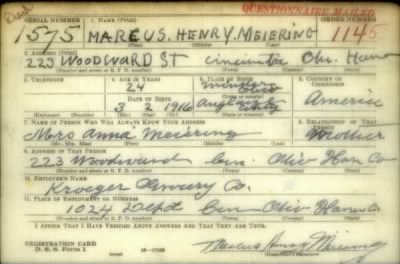 Dead
QUESTIONNAIRE MAILED
SERIAL NUMBER 1. NAME (Print) ORDER NUMBER
1575 MARCUS. HENRY. MEIERING 1145
(First) (Middle) (Last)
2. ADDRESS (Print)
223 WOODWARD ST Cincinnter Oho. Ham
(Number and street or R. F. D. number) (Town) (County) (State)
3. TELEPHONE 4. AGE IN YEARS 5. PLACE OF BIRTH 6. COUNTRY OF CITIZENSHIP
24 Minster Ohio
DATE OF BIRTH (Town or county)
3 2 1916 America
(Mo.) (Day) (Yr.) (State or country)
7. NAME OF PERSON WHO WILL ALWAYS KNOW YOUR ADDRESS 8. RELATIONSHIP OF THAT PERSON
Mrs Anna Meiering Mother
(Mr., Mrs., Miss) (First) (Middle) (Last)
9. ADDRESS OF THAT PERSON
223 Woodward Cin. Ohio Ham Co
(Number and street or R. F. D. number) (Town) (County) (State)
10. EMPLOYER'S NAME
Kroeger Grocery Co.
11. PLACE OF EMPLOYMENT OR BUSINESS
1024 Dept Cin Ohio Ham Co.
(Number and street or R. F. D. number) (Town) (County) (State)
I AFFIRM THAT I HAVE VERIFIED ABOVE ANSWERS AND THAT THEY ARE TRUE.
REGISTRATION CARD
D. S. S. Form 1 (over) 16—17105 Marcus Henry Meiering